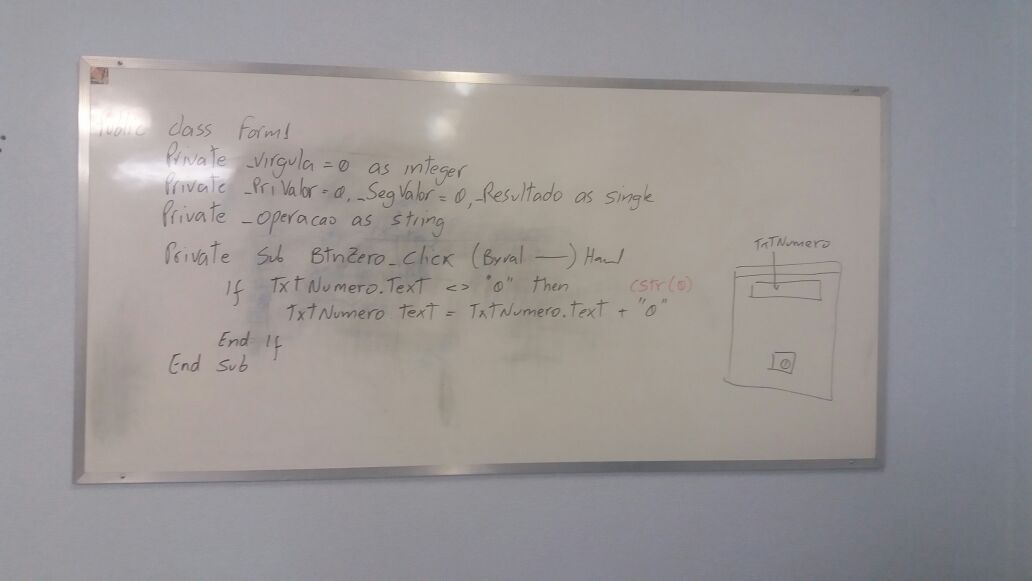 Public class Form1
Private _virgula = 0 as integer
Private _PriValor = 0, _SegValor = 0, _Resultado as single
Private _operacao as string
Private Sub BtnZero_Click (Byval —) Hand
If TxtNumero.Text <> "0" then
CStr(0)
TxtNumero Text = TxtNumero.Text + "0"
End If
End Sub
TxtNumero
0